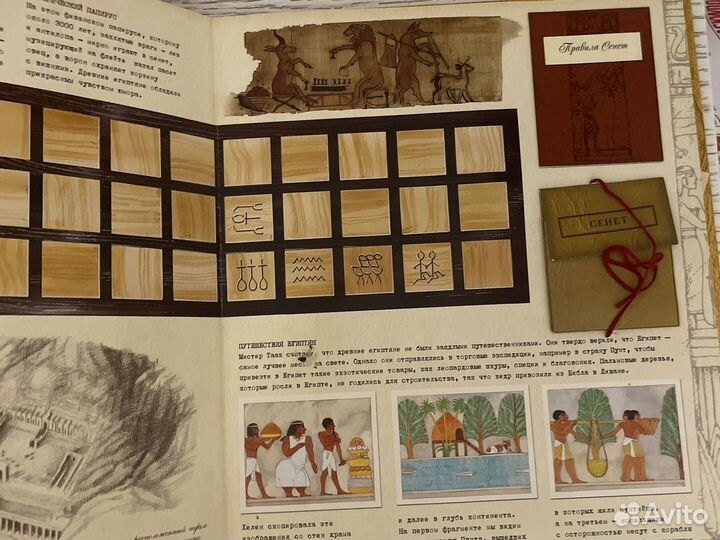 ПАПИРУС
На этом фиванском папирусе, которому
около 3000 лет, заклятые враги - лев
и антилопа - мирно играют в сенет,
музицирующий на флейте пасет
овец, а ворон охраняет корзину
с яйцами. Древние египтяне обладали
прекрасным чувством юмора.
Правила Сенет
СЕНЕТ
ПУТЕШЕСТВИЯ ЕГИПТЯН
Мистер Таах считает, что древние египтяне не были заядлыми путешественниками. Они твердо верили, что Египет —
самое лучшее место на свете. Однако они отправлялись в торговые экспедиции, например в страну Пунт, чтобы
привезти в Египет такие экзотические товары, как леопардовые шкуры, специи и благовония. Пальмовые деревья,
которые росли в Египте, не годились для строительства, так что кедр привозили из Библа в Ливане.
Хелен скопировала эти
изображения со стен храма
и далее в глубь континента.
На первом фрагменте мы видим
Пунта, вышедших
в которых жили
а на третьем -
с осторожностью несут с корабля
Avito